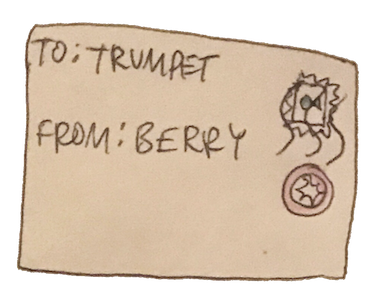 TO: TRUMPET
FROM: BERRY